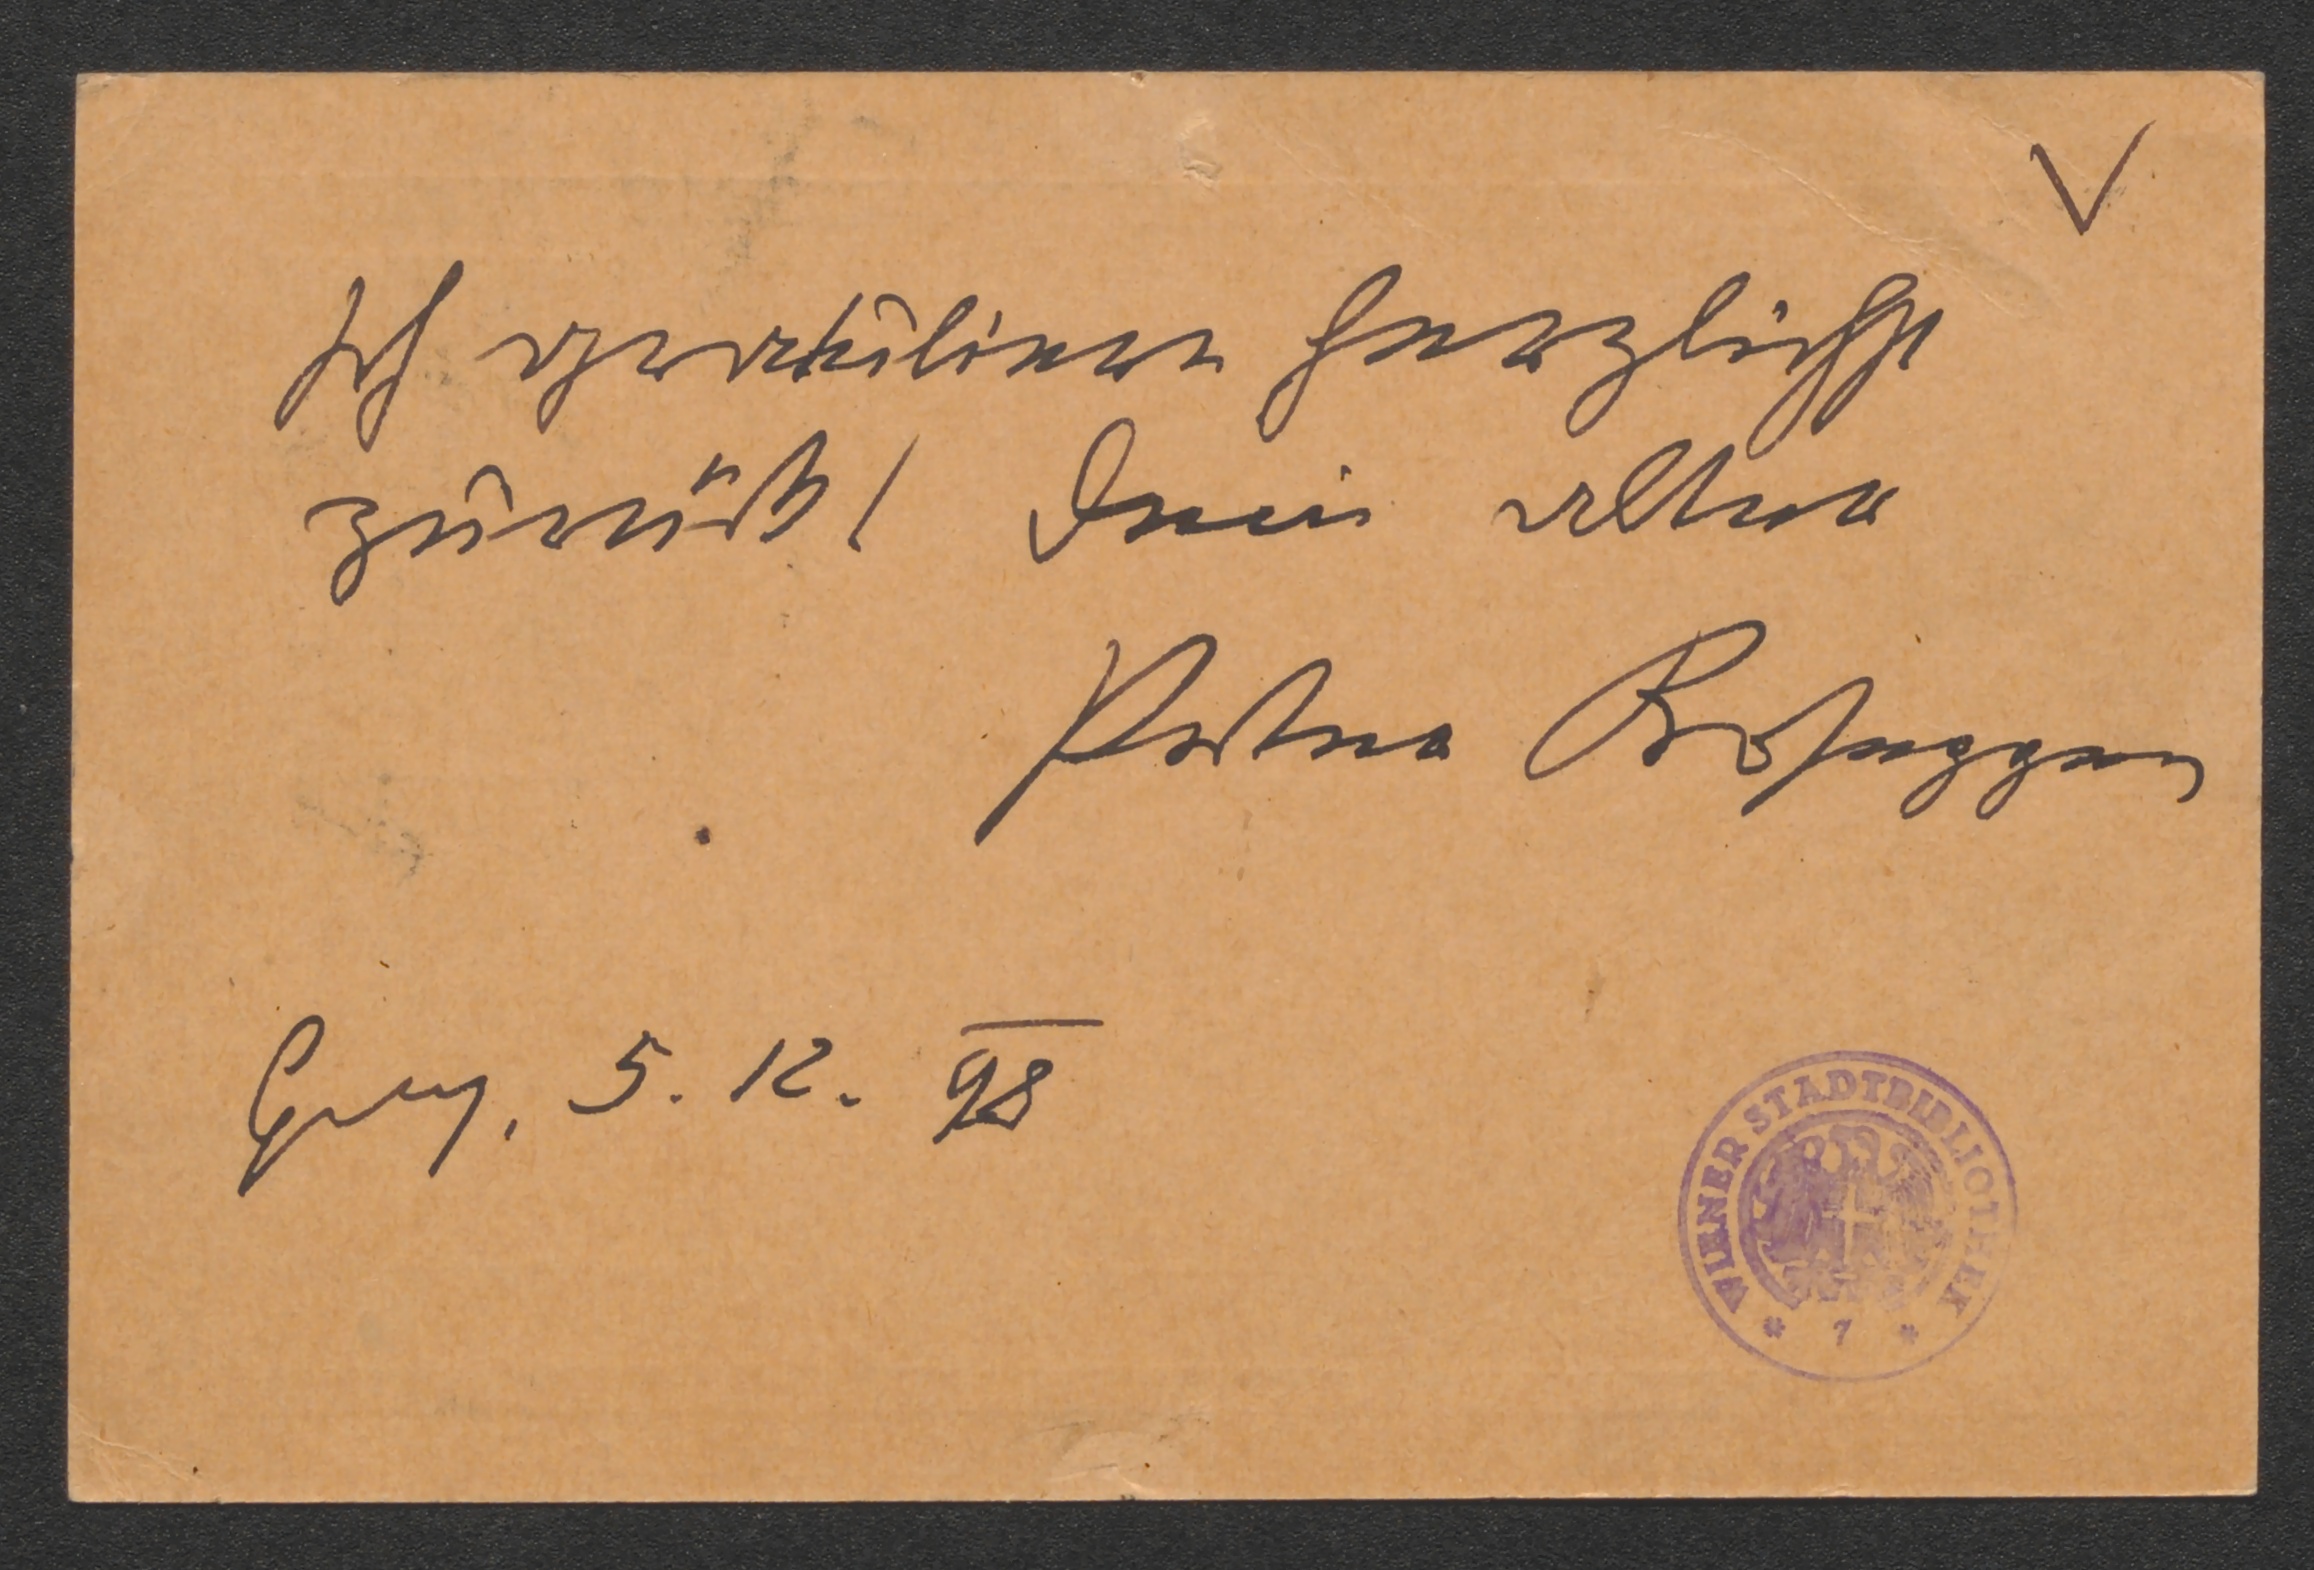 V
Ich gratuliere herzlichst
zurück! Dein alter
Peter Rosegger
Graz, 5. 12. 98
WIENER STADTBIBLIOTHEK
* 7 *